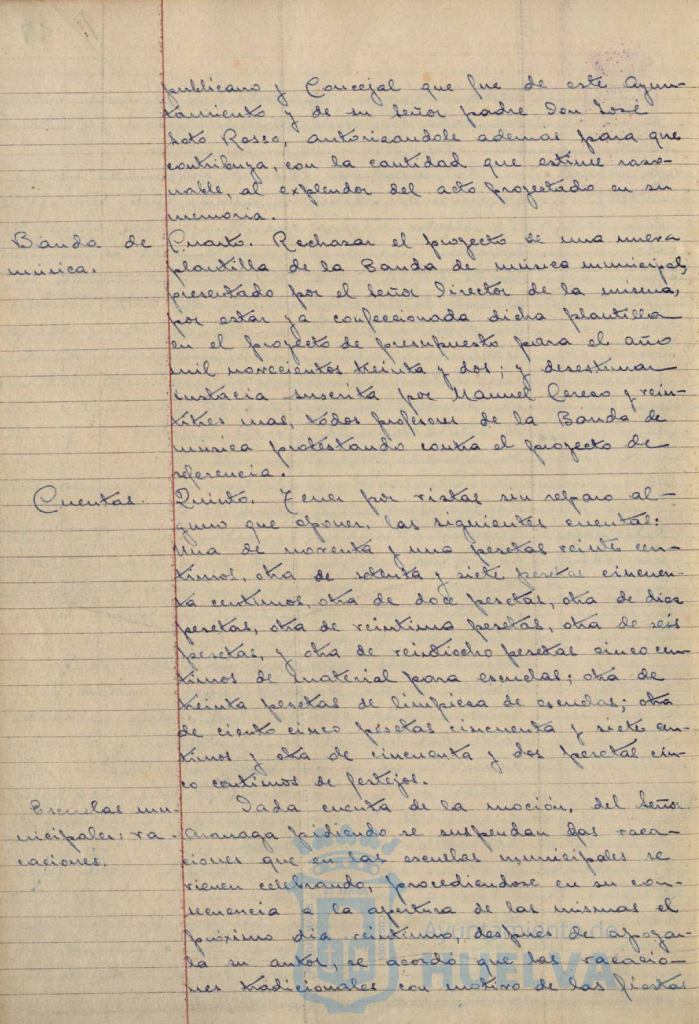 publicano y Concejal que fue de este Ayun-
tamiento y de su señor padre Don José
Soto Rosso, autorizandole ademas para que
contribuza, con la cantidad que estime razo-
nable, al explendor del acto projectado en su
memoria.
Banda de
música.
Cuarto. Rechazar el proyecto de una nueva
plantilla de la Banda de música municipal,
presentado por el señor Director de la misma,
por estar ya confeccionada dicha plantilla
en el proyecto de presupuesto para el año
mil novecientos treinta y dos; y desestimar
instacia suscrita por Manuel Cerezo y vein-
titres mas, todos profesores de la Banda de
música protestando contra el proyecto de
referencia.
Cuentas.
Quinto. Tener por vistas sin reparo al-
guno que oponer, las siguientes cuentas:
Una de noventa y una pesetas veinte cen-
timos, otra de setenta y siete pesetas cincuen-
ta centimos, otra de doce pesetas, otra de diez
pesetas, otra de veintiuna pesetas, otra de seis
pesetas, y otra de veintiocho pesetas cinco cen-
timos de material para escuelas; otra de
treinta pesetas de limpieza de escuelas; otra
de ciento cinco pesetas cincuenta y siete cen-
timos y otra de cincuenta y dos pesetas cin-
co centimos de festejos.
Escuelas mu-
nicipales: va-
caciones.
Dada cuenta de la moción, del Señor
Aranaga pidiendo se suspendan las vaca-
ciones que en las escuelas municipales se
vienen celebrando, procediendose en su con-
secuencia a la apertura de las mismas el
próximo dia veintiuno, despues de apoyar-
la su autor, se acordó que las vacacio-
nes tradicionales con motivo de las fiestas
Ayuntamiento de
HUELVA